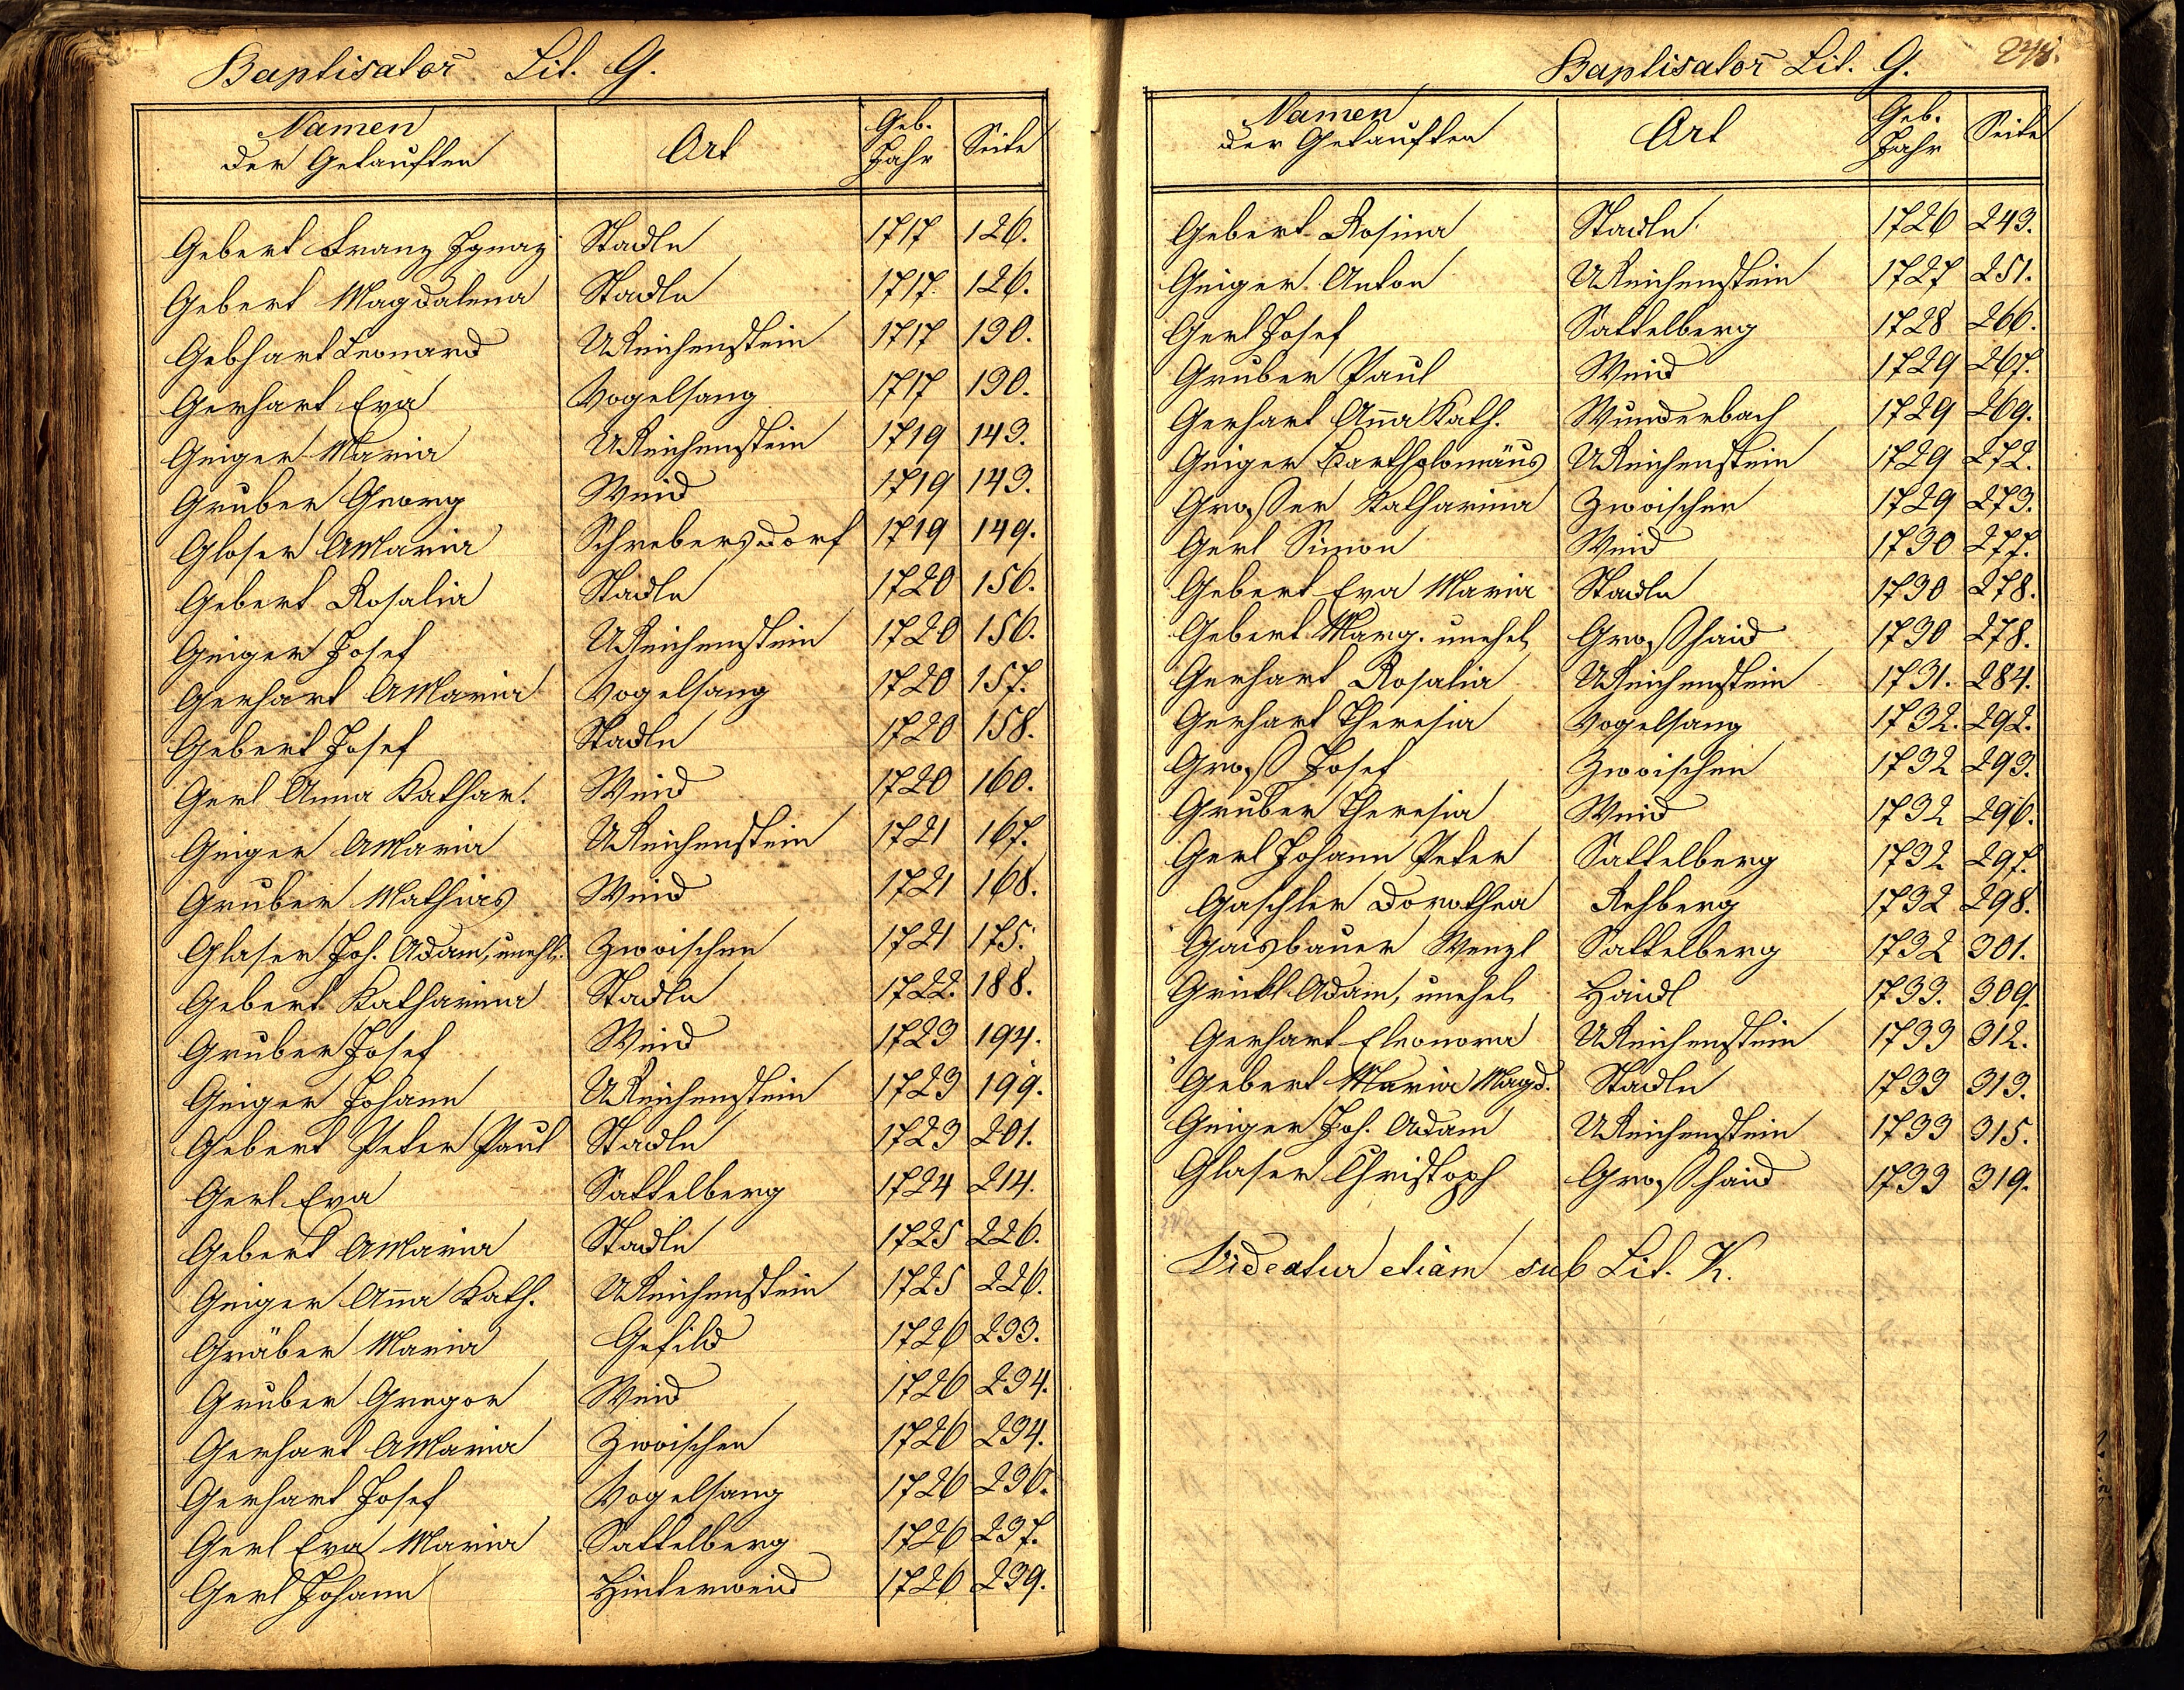 Baptisator̄ Lit. G.
Namen der Getauften Ort Geb. Jahr Seite
Gebert Franz Ignaz Stadln 1717 126.
Gebert Magdalena Stadln 1717 126.
Gebhart Leonard UReichenstein 1717 130.
Gerhart Eva Vogelsang 1717 130.
Geiger Maria UReichenstein 1719 143.
Gruber Georg Weid 1719 143.
Gloser AMaria Schrebersdorf 1719 149.
Gebert Rosalia Stadln 1720 156.
Geiger Josef UReichenstein 1720 156.
Gerhart AMaria Vogelsang 1720 157.
Gebert Josef Stadln 1720 158.
Gerl Anna Kathar. Weid 1720 160.
Geiger AMaria UReichenstein 1721 167.
Gruber Mathias Weid 1721 168.
Glaser Joh. Adam, unehl. Zwoischen 1721 175.
Gebert Katharina Stadln 1722. 188.
Gruber Josef Weid 1723 194.
Geiger Johann UReichenstein 1723 199.
Gebert Peter Paul Stadln 1723 201.
Gerl Eva Sattelberg 1724 214.
Gebert AMaria Stadln 1725 226.
GeigerAn̄a Kath. UReichenstein 1725 226.
Gräber Maria Gefild 1726 233.
Gruber Gregor Weid 1726 234.
Gerhart AMaria Zwoischen 1726 234.
Gerhart Josef Vogelsang 1726 236.
Gerl Eva Maria Sattelberg 1726 237.
Gerl Johann Hinterweid 1726 239.
Baptisator̄ Lit. G.
Namen der Getauften Ort Geb. Jahr Seite
Gebert Rosina Stadln 1726 243.
Geiger Anton UReichenstein 1727 251.
Gerl Josef Sattelberg 1728 266.
Gruber Paul Weid 1729 267.
Gerhart An̄a Kath. Wunderbach 1729 269.
Geiger Bartholomäus UReichenstein 1729 272.
Großer Katharina Zwoischen 1729 273.
Gerl Simon Weid 1730 277.
Gebert Eva Maria Stadln 1730 278.
Gebert Marg. unehel. Großhaid 1730 278.
Gerhart Rosalia UReichenstein 1731. 284.
Gerhart Theresia Vogelsang 1732. 292.
Groß Josef Zwoischen 1732 293.
Gruber Theresia Weid 1732 296.
Gerl Johann Peter Sattelberg 1732 297.
Gaschler Dorothea Rehberg 1732 298.
Gaisbauer Wenzl Sattelberg 1732 301.
Adam, unehel. Haidl 1733. 309.
Gerhart Eleonora UReichenstein 1733 312.
Gebert Maria Magd. Stadln 1733 313.
Geiger Joh. Adam UReichenstein 1733 315.
Glaser Christoph Großhaid 1733 319.
Videatur etiam sub Lit. K.